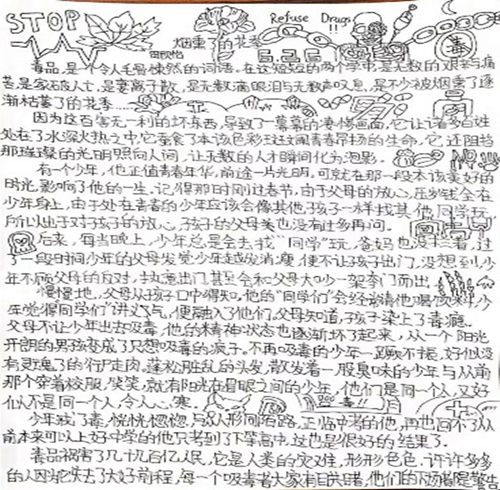 STOP
Refuse Drugs!!
6.26
毒
烟熏了的花季
毒品,是个令人毛骨悚然的词语。在这短短的两个字中,是无数的艰辛与痛
苦,是家破人亡,是妻离子散,是无数滴眼泪与无数声叹息,是不少被烟熏了逐
渐枯萎了的花季……
因为这百害无一利的坏东西,导致了一幕幕的凄惨画面,它让诸多百姓
处在了水深火热之中,它蚕食了本该色彩斑斓青春昂扬的生命,它还阻挡
那璀璨的光明照向人间,让无数的人才瞬间化为泡影。
有一个少年,他正值青春年华,前途一片光明。可就在那一段本该美好的
时光,影响了他的一生。记得那时刚过春节,由于父母的放心,压岁钱全在
少年身上,由于处在青春的少年应该会像其他孩子一样找其他同学玩,
所以出于对孩子的放心,孩子的父母美也没有过多再问。
后来,每当晚上,少年总是会去找“同学”玩,爸妈也没拦着,过
了一段时间少年的父母发觉少年越发消瘦,便不让孩子出门,没想到少
年不顾父母的反对,执意出门甚至会和父母大吵一架夺门而出。
慢慢地,父母从孩子口中得知,他的“同学们”会经常请他喝饮料,少
年觉得同学们讲义气,便融入了他们,父母知道,孩子染上了毒瘾。
父母不让少年出去吸毒,他的精神状态也逐渐坏了起来,从一个阳光
开朗的男孩变成了只想吸毒的疯子。不再吸毒的少年一蹶不振,好似没
有更魂了的行尸走肉,蓬松脏乱的头发,散发着一股臭味的少年与从前
那个穿着校服,笑笑,就有阳光在眉眼之间的少年,他们是同一个人,又好
似不是同一个人,令人心寒。
少年戒了毒,恍恍惚惚,与成人形同陌路,正临中考的他,再也回不了从
前,本来可以上好中学的他只考到了下等高中,这也是很好的结果了。
毒品祸害了几十几百亿人民,它是人类的灾难,形形色色,许许多多
的人因此失去了大好前程,每一个吸毒者大家有目共睹,他们的下场都是警告